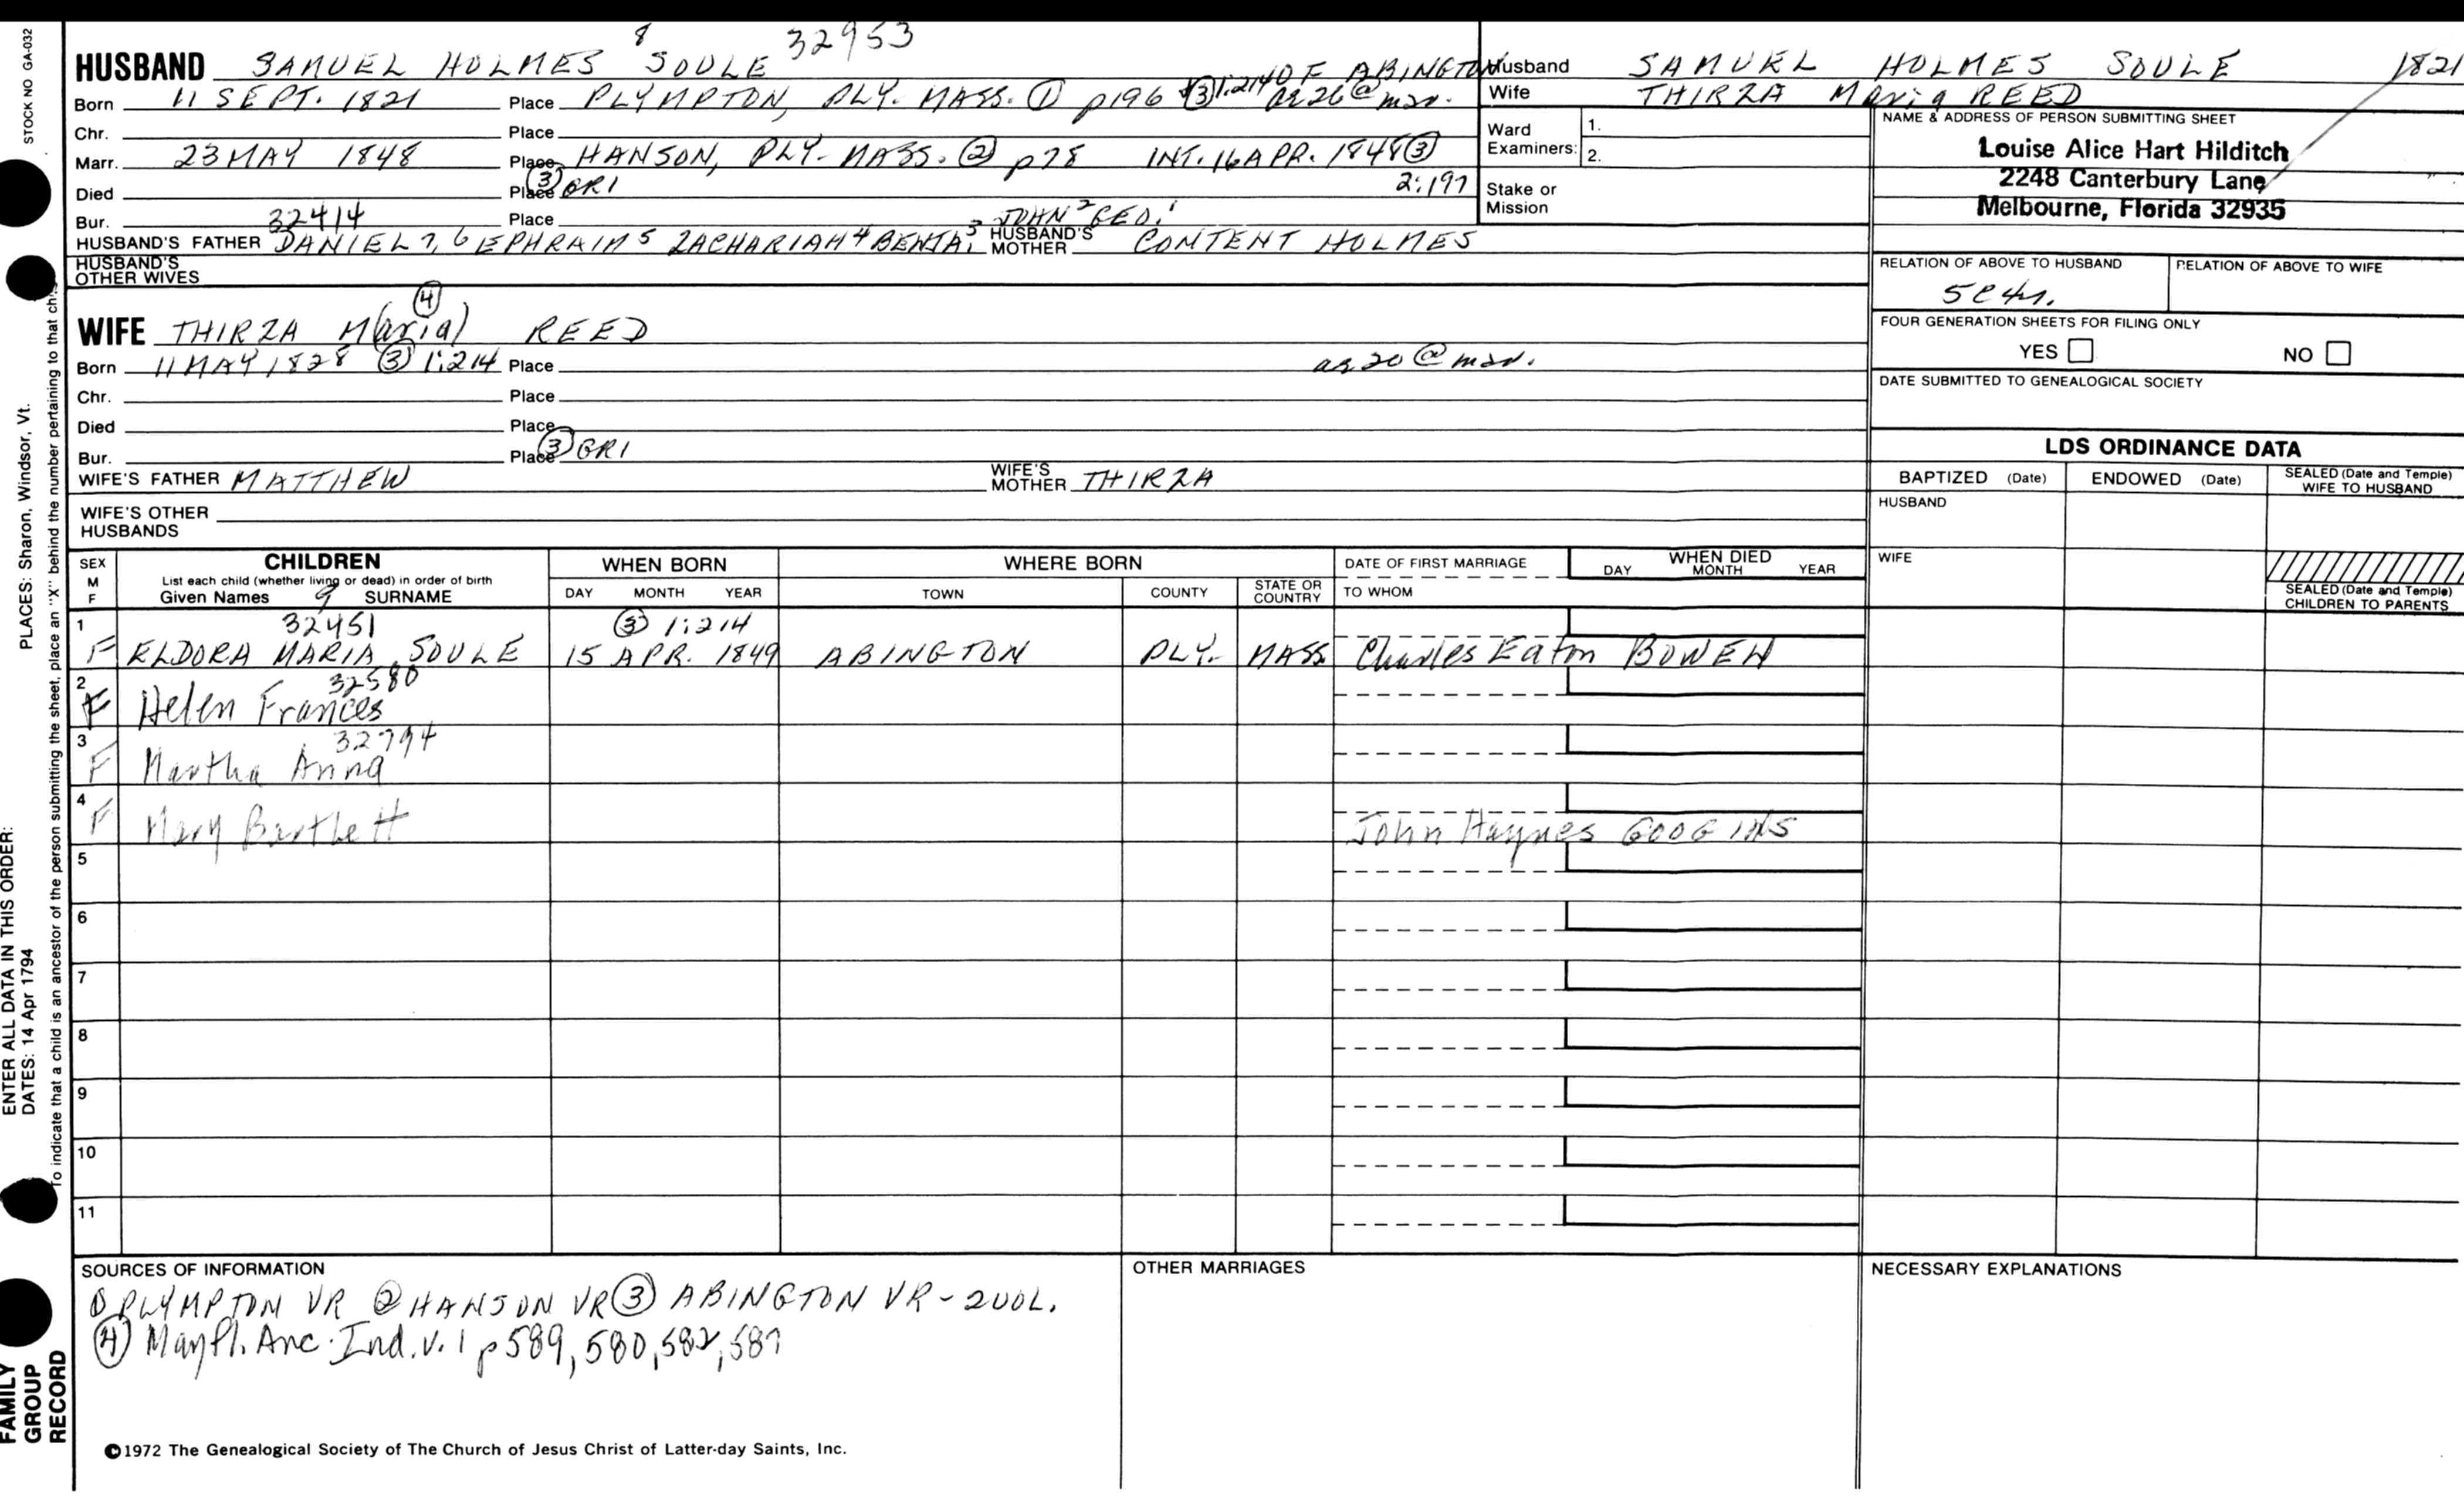 STOCK NO GA-032
8 32953
HUSBAND SAMUEL HOLMES SOULE ③1:214 OF ABINGTON
Born 11 SEPT. 1821 Place PLYMPTON, PLY. MASS. ① p196 ae 26 @ mar.
Chr. Place
Marr. 23 MAY 1848 Place HANSON, PLY. MASS. ② p78 INT. 16 APR. 1848 ③
Died Place ③ GR1 2:197
Bur. 32414 Place JOHN 2 GEO. 1
HUSBAND'S FATHER DANIEL 7, 6 EPHRAIM 5 ZACHARIAH 4 BENJA. 3 HUSBAND'S MOTHER CONTENT HOLMES
HUSBAND'S
OTHER WIVES
④
WIFE THIRZA M(aria) REED
Born 11 MAY 1828 ③ 1:214 Place ae 20 @ mar.
Chr. Place
Died Place
Bur. Place ③ GR1
WIFE'S FATHER MATTHEW WIFE'S MOTHER THIRZA
WIFE'S OTHER
HUSBANDS
Husband SAMUEL HOLMES SOULE 1821
Wife THIRZA Maria REED
Ward
Examiners: 1.
2.
Stake or
Mission
NAME & ADDRESS OF PERSON SUBMITTING SHEET
Louise Alice Hart Hilditch
2248 Canterbury Lane
Melbourne, Florida 32935
RELATION OF ABOVE TO HUSBAND RELATION OF ABOVE TO WIFE
5c4r.
FOUR GENERATION SHEETS FOR FILING ONLY
YES NO
DATE SUBMITTED TO GENEALOGICAL SOCIETY
LDS ORDINANCE DATA
BAPTIZED (Date) ENDOWED (Date) SEALED (Date and Temple)
WIFE TO HUSBAND
HUSBAND
WIFE
SEALED (Date and Temple)
CHILDREN TO PARENTS
SEX
M
F
CHILDREN
List each child (whether living or dead) in order of birth
Given Names 9 SURNAME
WHEN BORN
DAY MONTH YEAR
WHERE BORN
TOWN COUNTY STATE OR COUNTRY
DATE OF FIRST MARRIAGE
TO WHOM
WHEN DIED
DAY MONTH YEAR
1 32451 ③ 1:214
F ELDORA MARIA SOULE 15 APR. 1849 ABINGTON PLY. MASS Charles Eaton BOWEN
2 32580
F Helen Frances
3 32794
F Martha Anna
4
F Mary Bartlett John Haynes GOOGINS
5
6
7
8
9
10
11
SOURCES OF INFORMATION
① PLYMPTON VR ② HANSON VR ③ ABINGTON VR - 2VOL.
④ Mayfl. Anc. Ind. v. 1 p 589, 580, 582, 587
OTHER MARRIAGES
NECESSARY EXPLANATIONS
©1972 The Genealogical Society of The Church of Jesus Christ of Latter-day Saints, Inc.
PLACES: Sharon, Windsor, Vt.
ENTER ALL DATA IN THIS ORDER:
DATES: 14 Apr 1794
To indicate that a child is an ancestor of the person submitting the sheet, place an "X" behind the number pertaining to that
FAMILY
GROUP
RECORD